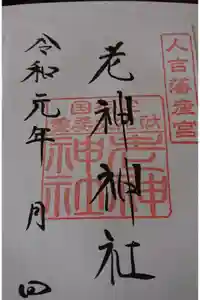 人吉藩産宮
老神神社
令和元年 月 日
老神神社